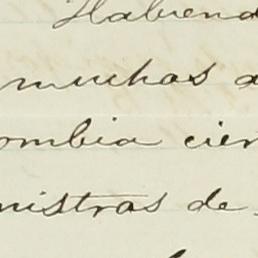 Habiend
muchas a
ombia cier
nistras de